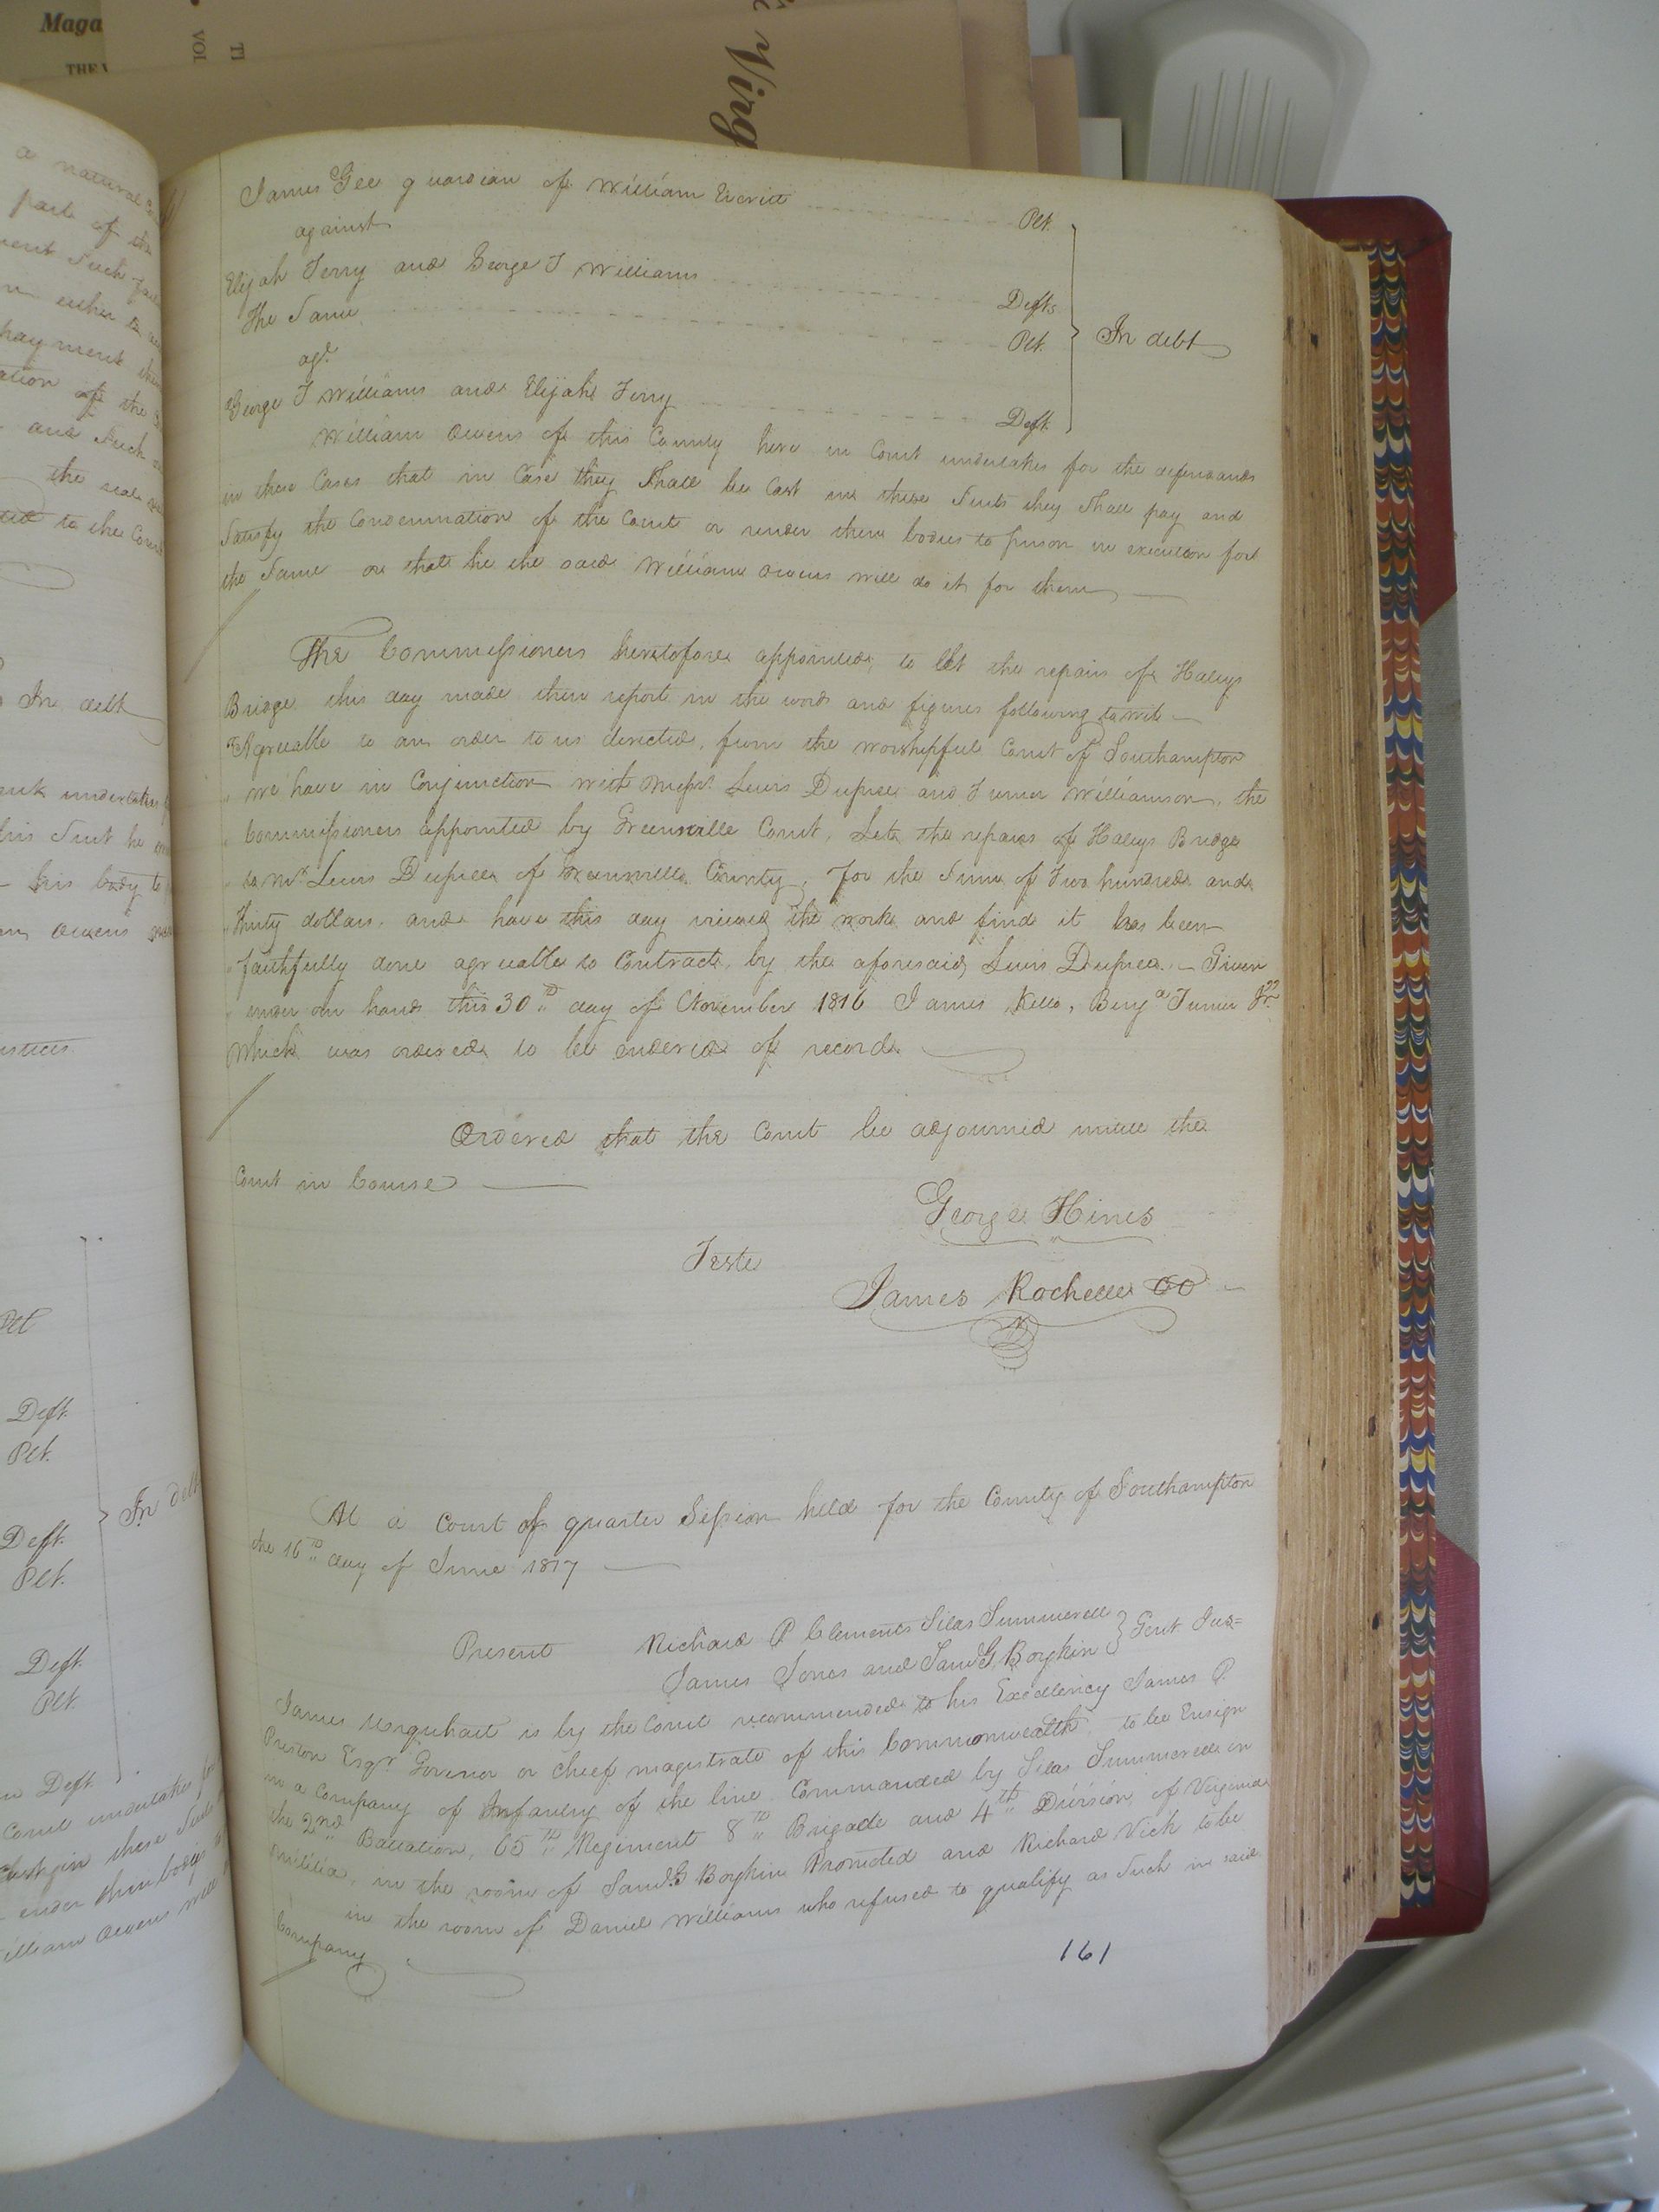 Maga
THE V
VOL
TI
Virg
James Gee guardian of William Everitt Plt.
against
Elijah Ferry and George T Williams Defts
The Same Plt. In debt
agt.
George T Williams and Elijah Ferry Deft.
William Owens of this County here in Court undertakes for the defendands
in these Cases that in Case they Shall be Cast in these Suits they Shall pay and
Satisfy the Condemnation of the Court or render there bodies to prison in execution for
the Same or that he the said William Owens will do it for them
The Commissioners heretofore appointed, to let the repairs of Haleys
Bridge this day made their report in the words and figures following towit
"Agreeable to an order to us directed, from the worshipfull Court of Southampton
" we have in Conjunction with Messrs. Lewis Dupree and Turner Williamson, the
" Commissioners appointed by Greensville Court, Let the repairs of Haleys Bridge
" to Mr. Lewis Dupree of Greensville County, for the Sum of Two hundred and
" thirty dollars, and have this day viewed the work and find it has been
" faithfully done agreeable to Contract, by the aforesaid Lewis Dupree. — Given
" under our hands this 30th day of November 1816 James Kello, Benja Turner Jr."
which was ordered to be entered of record.
Ordered that the Court be adjourned untill the
Court in Course
George Hines
Teste
James Rochelle CC
At a Court of quarter Session held for the County of Southampton
the 16th day of June 1817
Present Richard P Clements Silas Summerell
James Jones and Saml G Boykin } Gent Jus=
James Urquhart is by the Court recommended to his Excellency James P.
Preston Esqr Govenor or Chief magistrate of this Commonwealth, to be Ensign
in a Company of Infantry of the line Commanded by Silas Summerell in
the 2nd Battalion, 65th Regiment 8th Brigade and 4th Division, of Virginia
militia, in the room of Saml G Boykin Promoted and Richard Vick to be
in the room of Daniel Williams who refused to qualify as Such in said
Company
161
a natural
part of the
In debt
his Suit he
his body to
Owens
Plt
Deft.
Plt.
In debt
Deft.
Plt.
Deft.
Plt.
Deft
Court undertakes for
these Suits
William Owens will